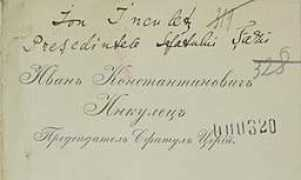 Ion Inculeț
Președintele Sfatului Țării
328
Иванъ Константиновичъ
Инкулецъ
000320
Председатель Сфатулъ Церій.